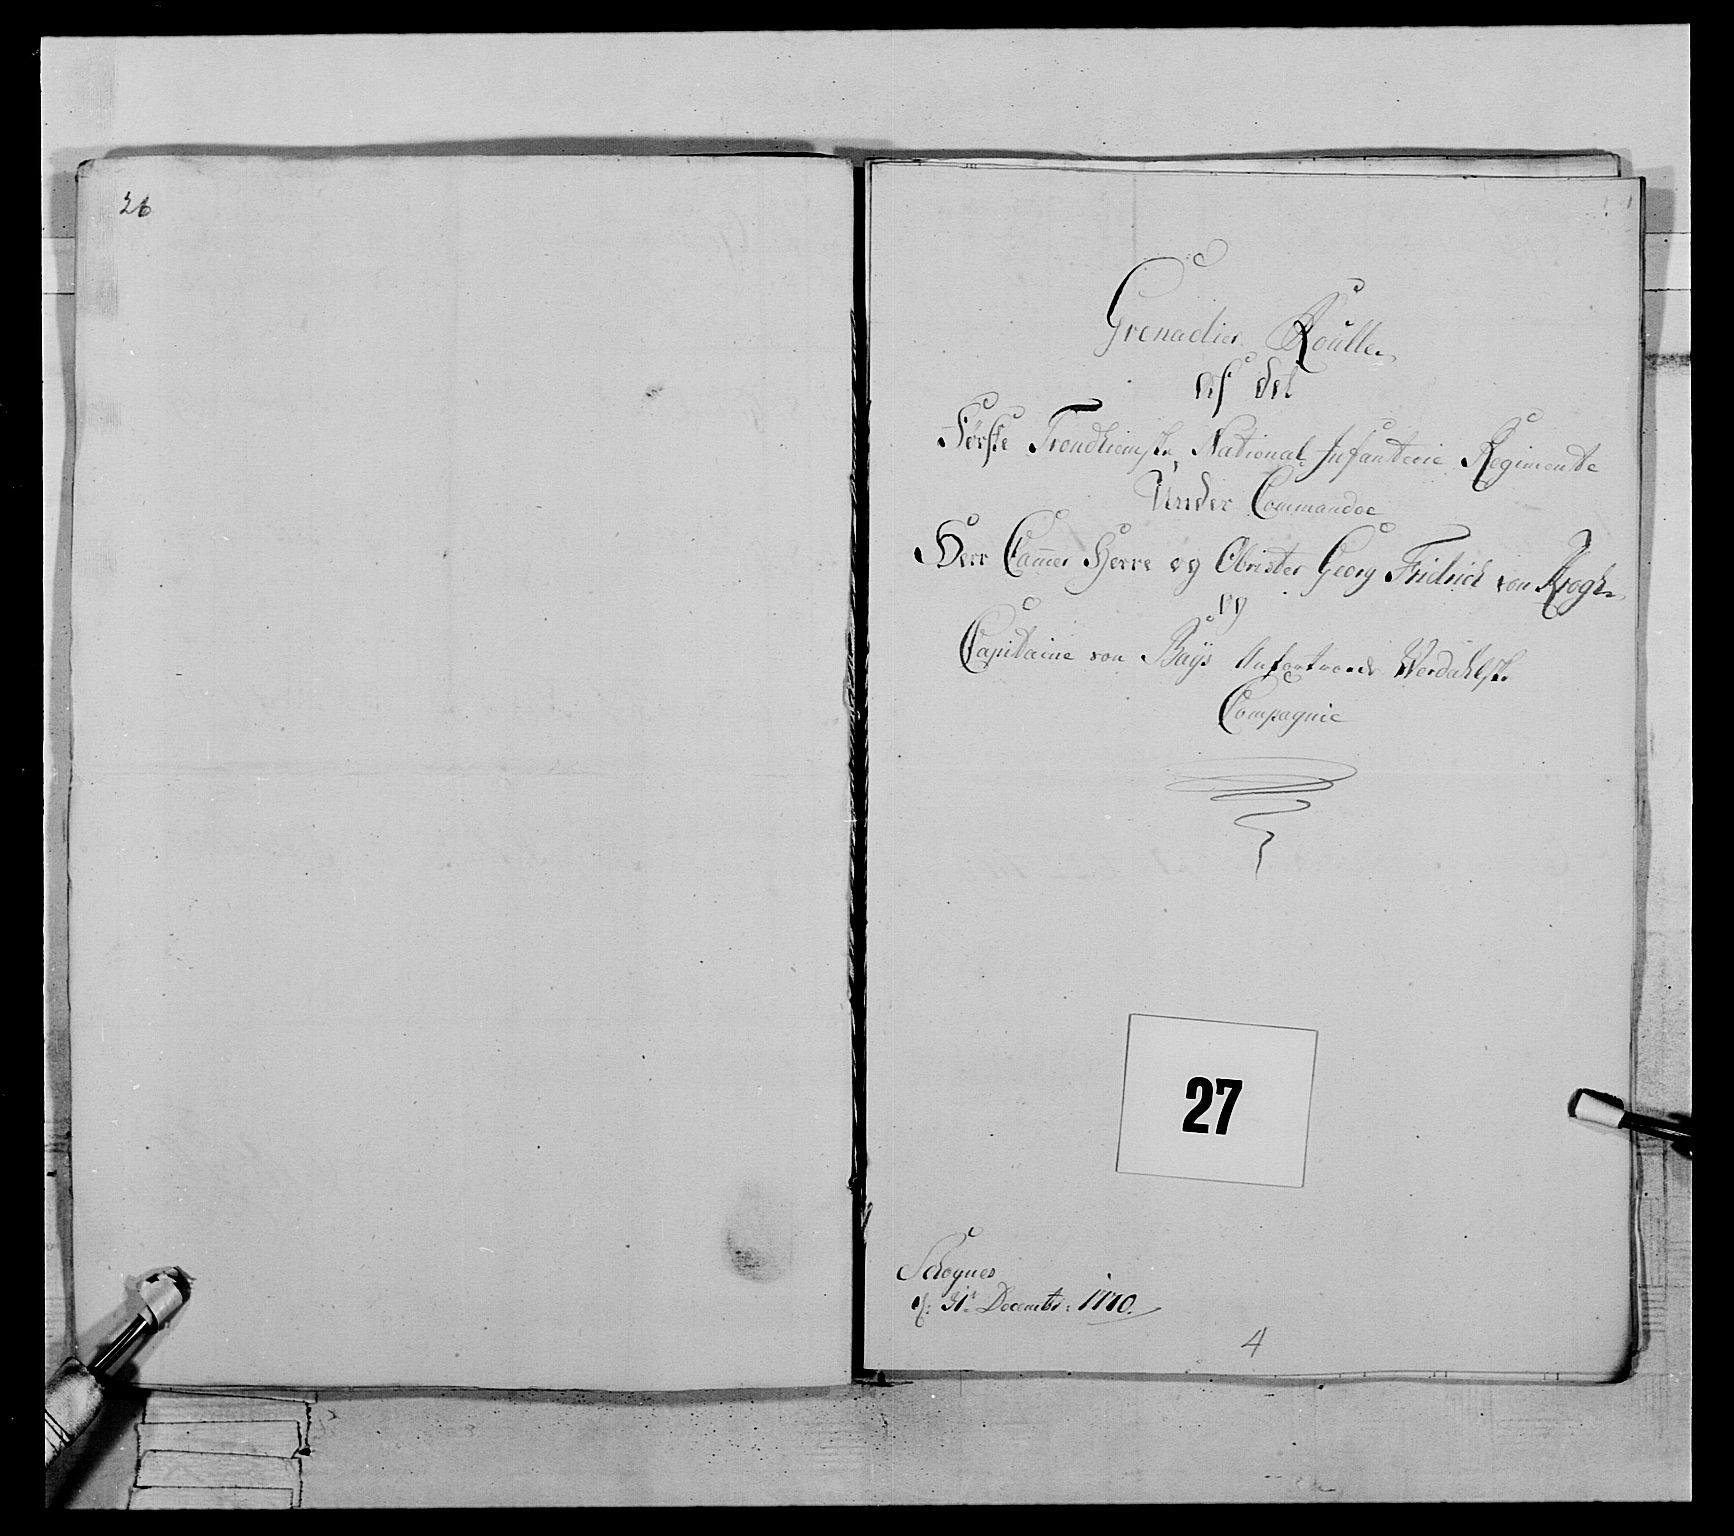 26
Grenadier Roulle
af det
Første Trondhiemske National Infanterie Regimente
Under Commandoe
Herr Cammer Herre og Obrister Georg Fridrich von Krogh
og
Capitaine von Bay's Anfortroede Werdahlske
Compagnie
27
Schognes
d: 31te Decembr: 1770.
4